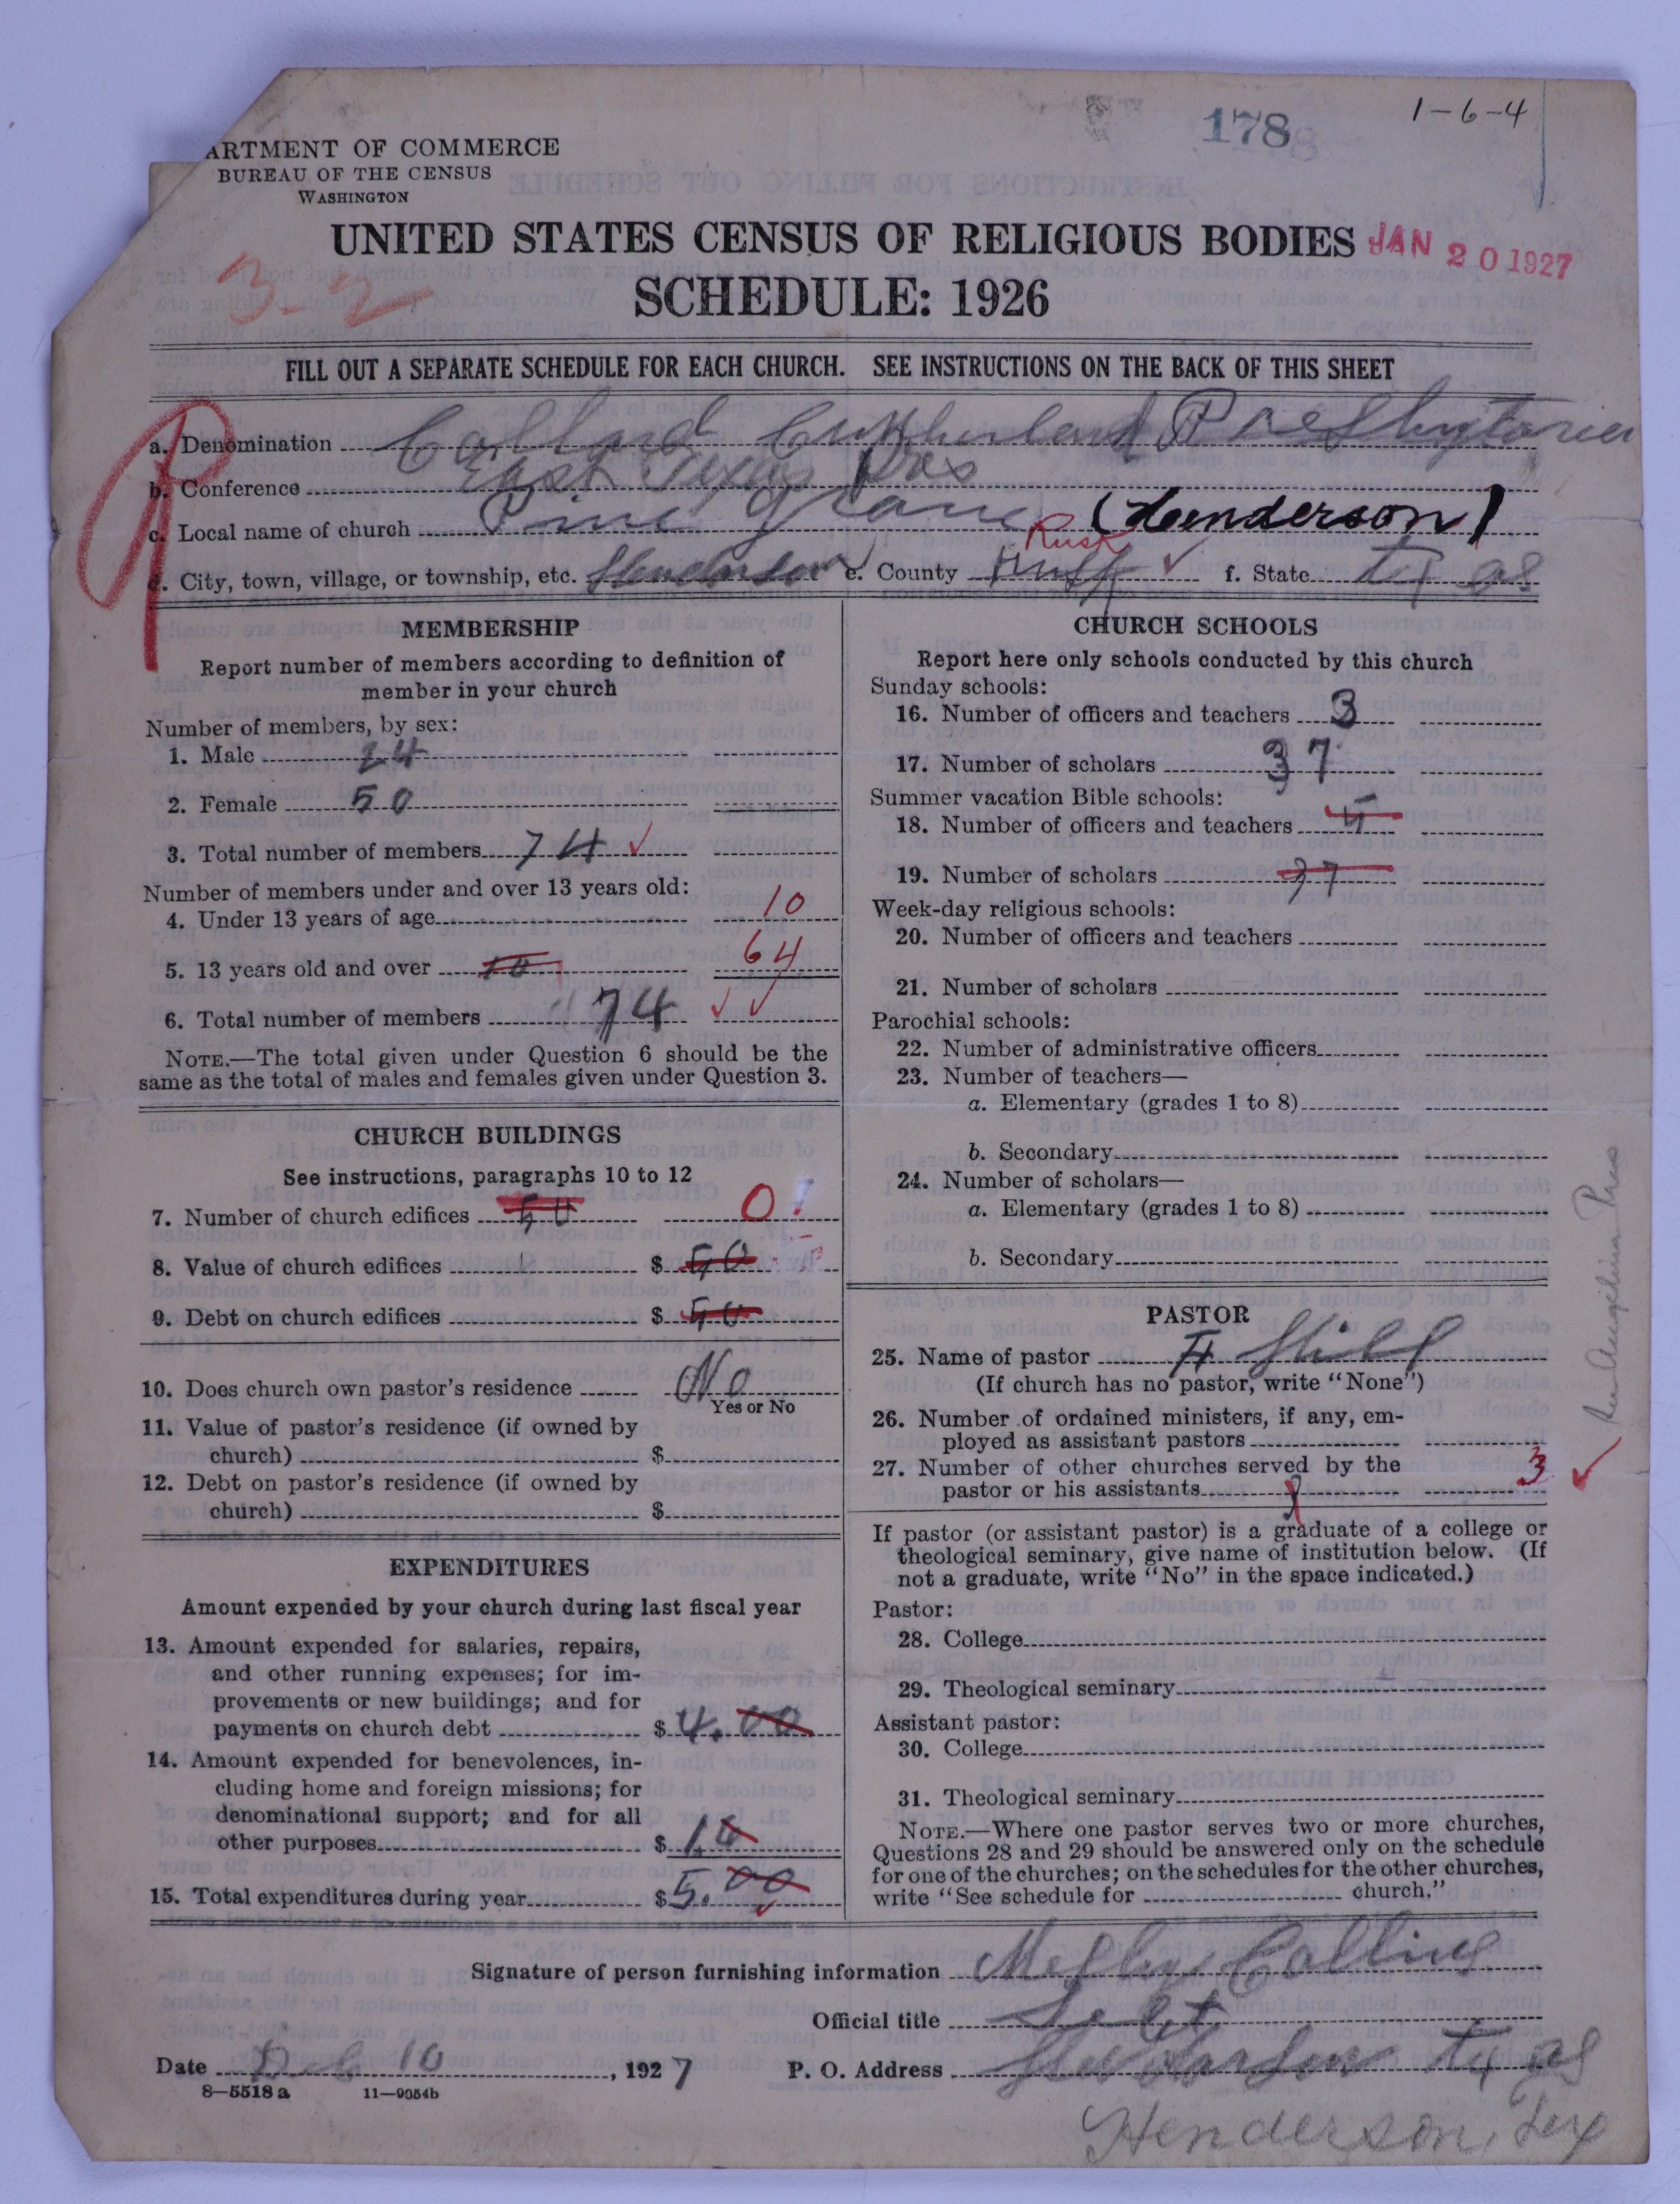 1-6-4
178
ARTMENT OF COMMERCE
BUREAU OF THE CENSUS
WASHINGTON
UNITED STATES CENSUS OF RELIGIOUS BODIES
JAN 20 1927
SCHEDULE: 1926
3-2
FILL OUT A SEPARATE SCHEDULE FOR EACH CHURCH. SEE INSTRUCTIONS ON THE BACK OF THIS SHEET
a. Denomination Presbyterian
b. Conference East Texas Pres
c. Local name of church Pine (Henderson)
Rusk
City, town, village, or township, etc. Henderson e. County Rusk f. State
MEMBERSHIP
Report number of members according to definition of
member in your church
Number of members, by sex:
1. Male 24
2. Female 50
3. Total number of members 74 ✓
Number of members under and over 13 years old:
4. Under 13 years of age 10
5. 13 years old and over 10 64
6. Total number of members 74 ✓ ✓
NOTE.—The total given under Question 6 should be the
same as the total of males and females given under Question 3.
CHURCH BUILDINGS
See instructions, paragraphs 10 to 12
7. Number of church edifices 50 0
8. Value of church edifices $ 50
9. Debt on church edifices $ 50
10. Does church own pastor's residence No
Yes or No
11. Value of pastor's residence (if owned by
church) $
12. Debt on pastor's residence (if owned by
church) $
EXPENDITURES
Amount expended by your church during last fiscal year
13. Amount expended for salaries, repairs,
and other running expenses; for im-
provements or new buildings; and for
payments on church debt $ 4.00
14. Amount expended for benevolences, in-
cluding home and foreign missions; for
denominational support; and for all
other purposes $
15. Total expenditures during year $ 5.00
CHURCH SCHOOLS
Report here only schools conducted by this church
Sunday schools:
16. Number of officers and teachers 3
17. Number of scholars 37
Summer vacation Bible schools:
18. Number of officers and teachers 5
19. Number of scholars 37
Week-day religious schools:
20. Number of officers and teachers
21. Number of scholars
Parochial schools:
22. Number of administrative officers
23. Number of teachers—
a. Elementary (grades 1 to 8)
b. Secondary
24. Number of scholars—
a. Elementary (grades 1 to 8)
b. Secondary
PASTOR
25. Name of pastor
(If church has no pastor, write "None")
26. Number of ordained ministers, if any, em-
ployed as assistant pastors
27. Number of other churches served by the
pastor or his assistants 3 ✓
If pastor (or assistant pastor) is a graduate of a college or
theological seminary, give name of institution below. (If
not a graduate, write "No" in the space indicated.)
Pastor:
28. College
29. Theological seminary
Assistant pastor:
30. College
31. Theological seminary
NOTE.—Where one pastor serves two or more churches,
Questions 28 and 29 should be answered only on the schedule
for one of the churches; on the schedules for the other churches,
write "See schedule for church."
Signature of person furnishing information Collins
Official title
Date 10, 1927 P. O. Address
8-5518a 11-9054b
Henderson, Tex